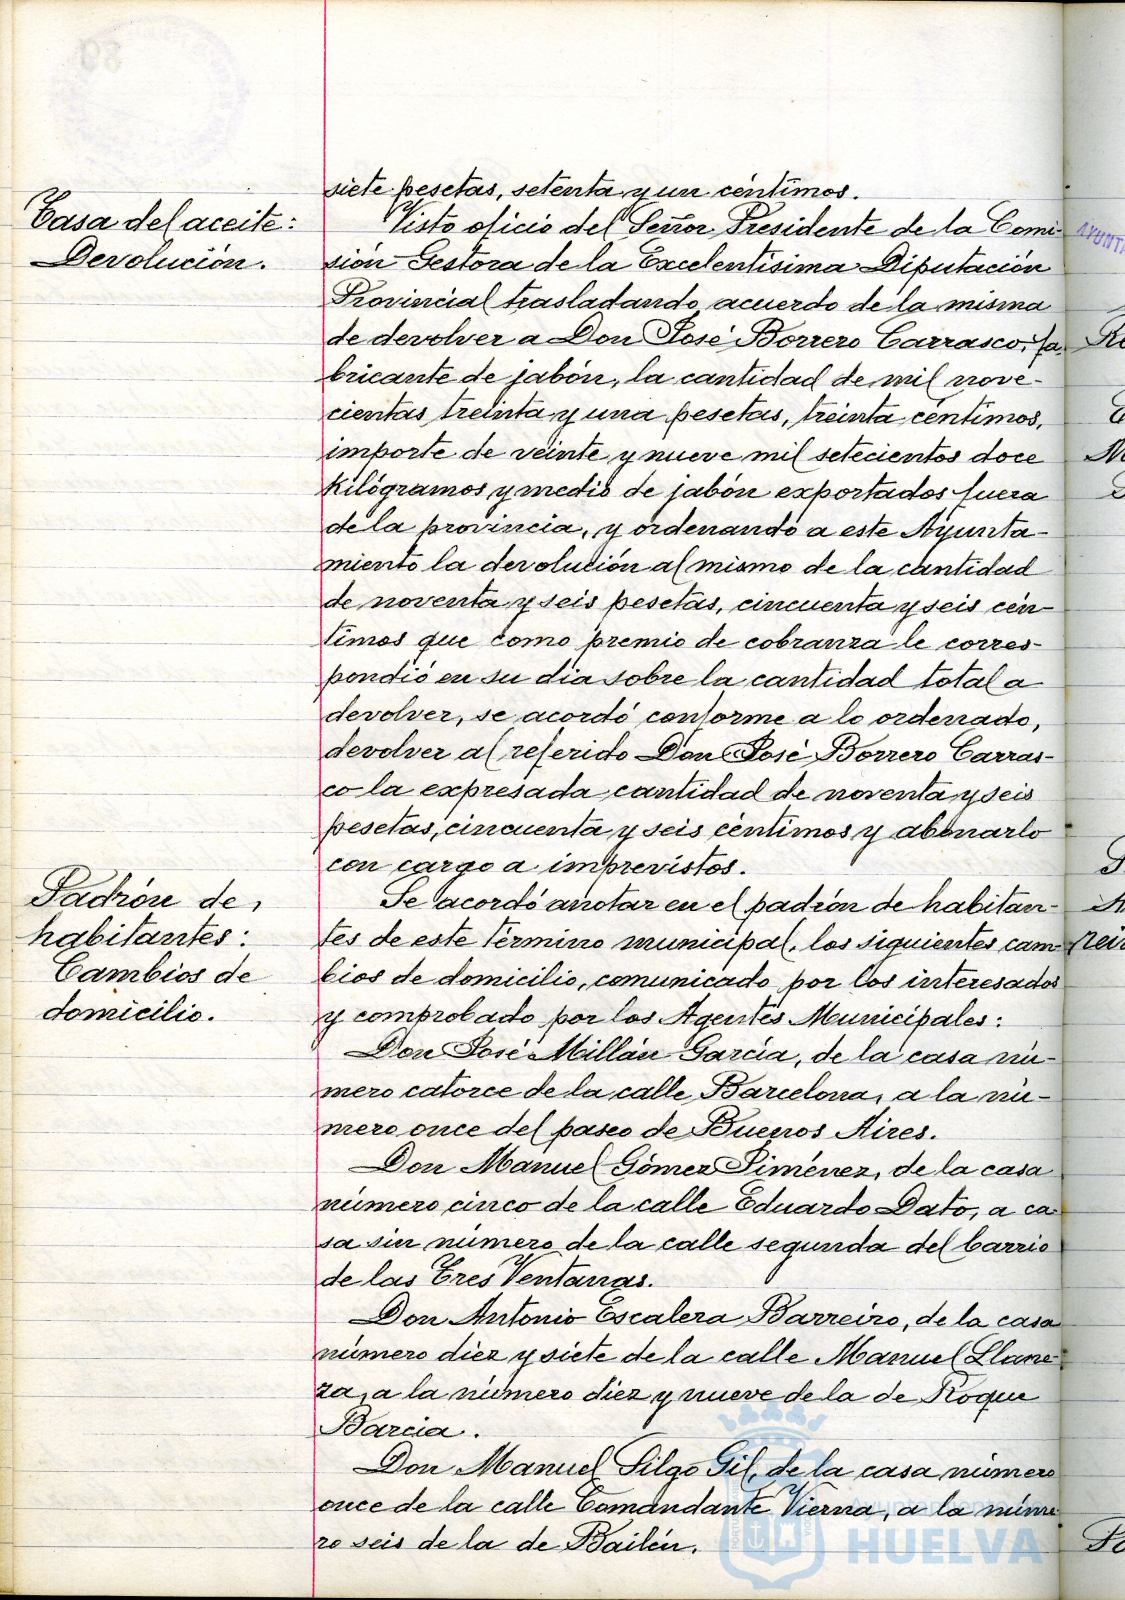 Tasa del aceite:
Devolución.
siete pesetas, setenta y un céntimos.
Visto oficio del Señor Presidente de la Comi-
sión Gestora de la Excelentísima Diputación
Provincial trasladando acuerdo de la misma
de devolver a Don José Borrero Carrasco, fa-
bricante de jabón, la cantidad de mil nove-
cientas treinta y una pesetas, treinta céntimos,
importe de veinte y nueve mil setecientos doce
kilógramos y medio de jabón exportados fuera
de la provincia, y ordenando a este Ayunta-
miento la devolución al mismo de la cantidad
de noventa y seis pesetas, cincuenta y seis cén-
timos que como premio de cobranza le corres-
pondió en su día sobre la cantidad total a
devolver, se acordó conforme a lo ordenado,
devolver al referido Don José Borrero Carras-
co la expresada cantidad de noventa y seis
pesetas, cincuenta y seis céntimos y abonarlo
con cargo a imprevistos.
Padrón de
habitantes:
Cambios de
domicilio.
Se acordó anotar en el padrón de habitan-
tes de este término municipal, los siguientes cam-
bios de domicilio, comunicado por los interesados
y comprobado por los Agentes Municipales:
Don José Millán García, de la casa nú-
mero catorce de la calle Barcelona, a la nú-
mero once del paseo de Buenos Aires.
Don Manuel Gómez Jiménez, de la casa
número cinco de la calle Eduardo Dato, a ca-
sa sin número de la calle segunda del barrio
de las Tres Ventanas.
Don Antonio Escalera Barreiro, de la casa
número diez y siete de la calle Manuel Llane-
za, a la número diez y nueve de la de Roque
Barcia.
Don Manuel Silgo Gil, de la casa número
once de la calle Comandante Vierna, a la núme-
ro seis de la de Bailén.
HUELVA